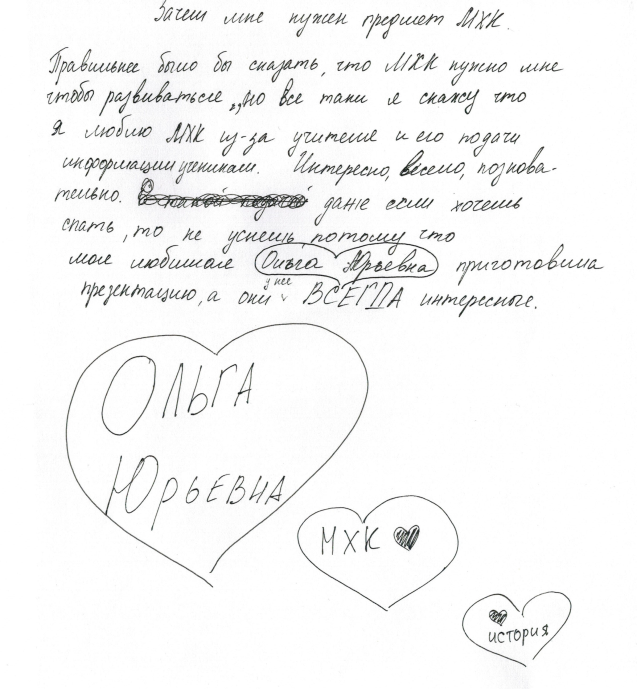 Зачем мне нужен предмет МХК.
Правильнее было бы сказать, что МХК нужно мне
чтобы развиваться, но все таки я скажу что
я люблю МХК из-за учителя и его подачи
информации ученикам. Интересно, весело, познова-
тельно. даже если хочешь
спать, то не уснешь потому что
моя любимая Ольга Юрьевна приготовила
презентацию, а они у нее ВСЕГДА интересные.
ОЛЬГА
ЮРЬЕВНА
МХК
история